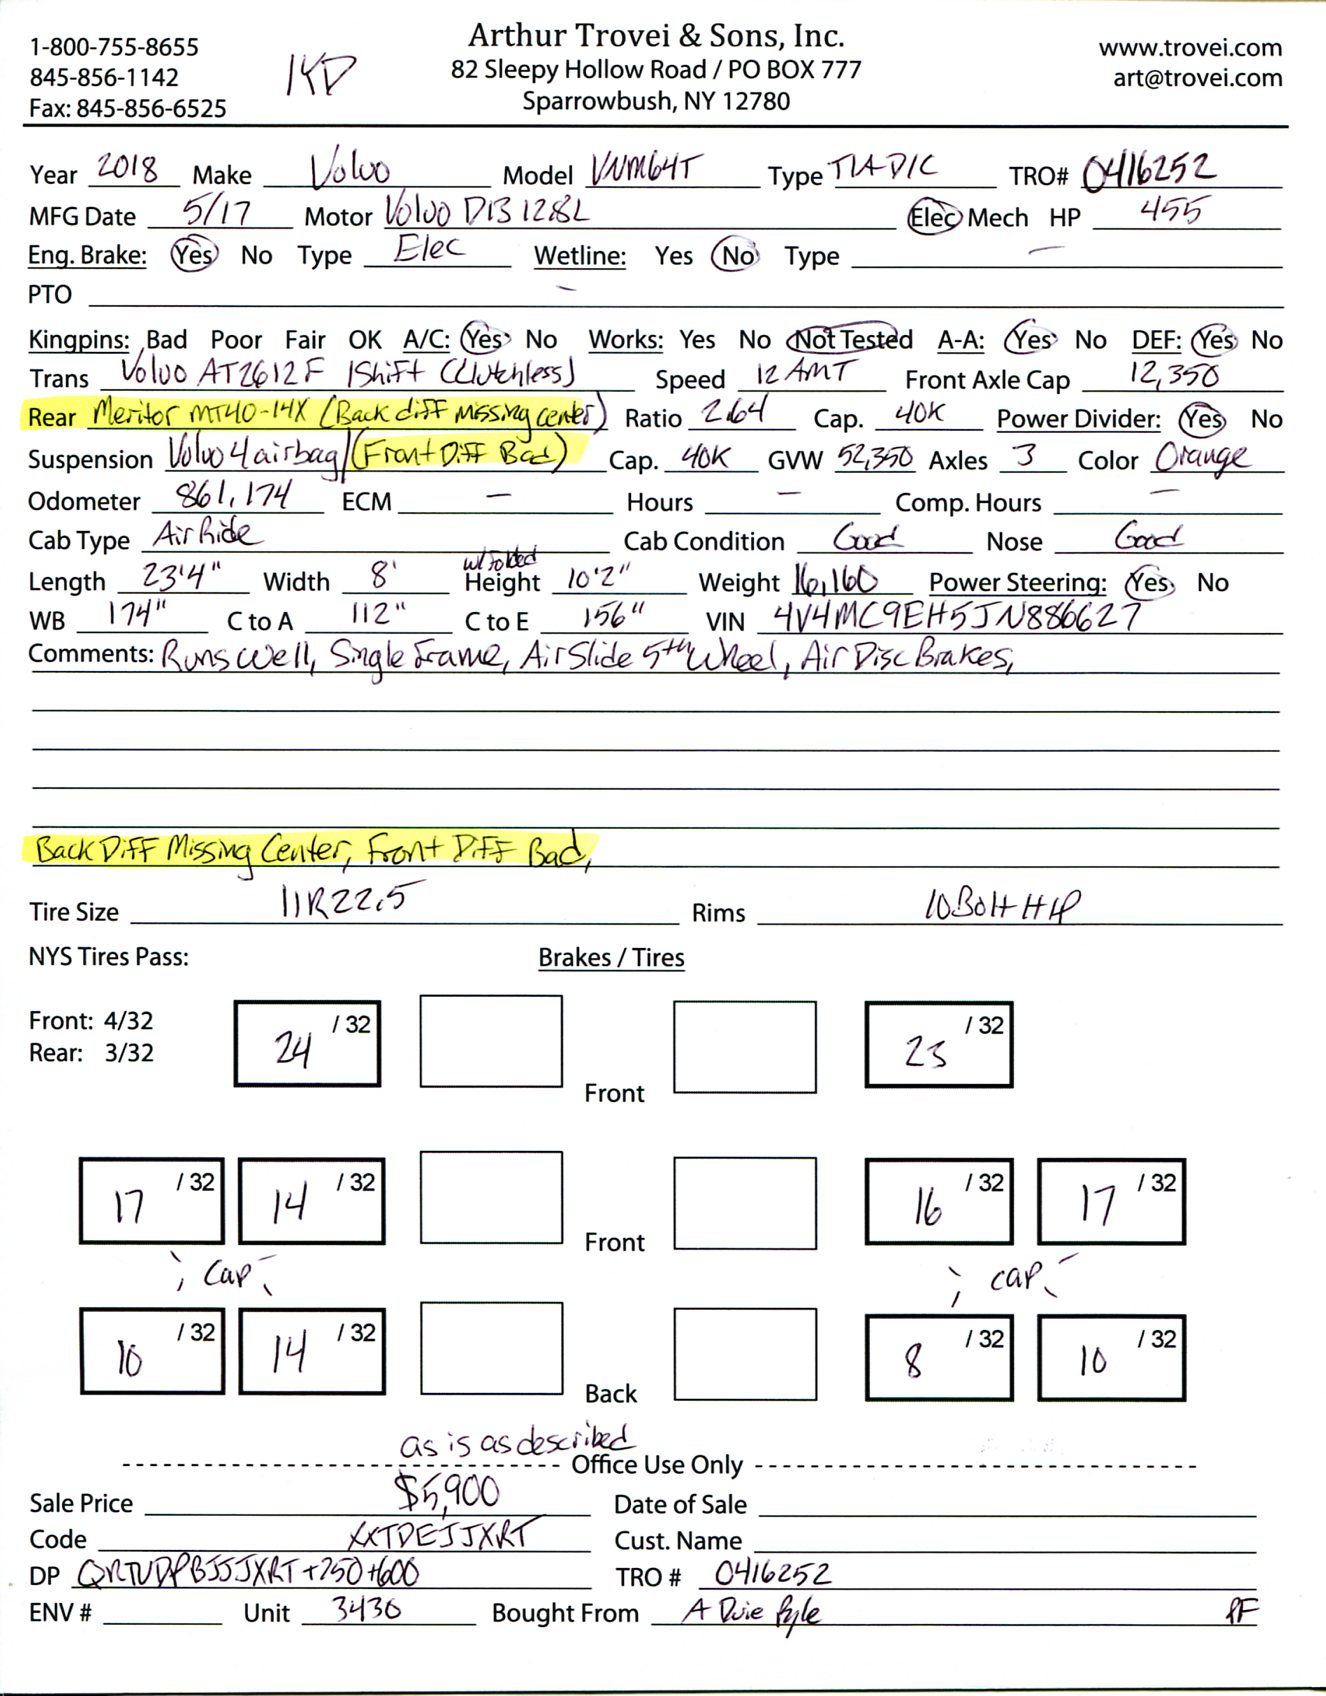 1-800-755-8655
845-856-1142
Fax: 845-856-6525
Arthur Trovei & Sons, Inc.
82 Sleepy Hollow Road / PO BOX 777
Sparrowbush, NY 12780
www.trovei.com
art@trovei.com
Year 2018 Make Volvo Model VNM64T Type T/A D/C TRO# 0416252
MFG Date 5/17 Motor Volvo D13 128L Elec Mech HP 455
Eng. Brake: Yes No Type Elec Wetline: Yes No Type –
PTO –
Kingpins: Bad Poor Fair OK A/C: Yes No Works: Yes No Not Tested A-A: Yes No DEF: Yes No
Trans Volvo AT2612F IShift (Clutchless) Speed 12 AMT Front Axle Cap 12,350
Rear Meritor MT40-14X (Back diff missing center) Ratio 2.64 Cap. 40K Power Divider: Yes No
Suspension Volvo 4 airbag/(Front Diff Bad) Cap. 40K GVW 52,350 Axles 3 Color Orange
Odometer 861,174 ECM – Hours – Comp. Hours –
Cab Type Air Ride Cab Condition Good Nose Good
w/ folded
Length 23'4" Width 8' Height 10'2" Weight 16,160 Power Steering: Yes No
WB 174" C to A 112" C to E 156" VIN 4V4MC9EH5JN886627
Comments: Runs well, Single Frame, Air Slide 5th Wheel, Air Disc Brakes,
Back Diff Missing Center, Front Diff Bad,
Tire Size 11R22.5 Rims 10 Bolt HP
NYS Tires Pass: Brakes / Tires
Front: 4/32
Rear: 3/32
24 /32 23 /32
Front
17 /32 14 /32 16 /32 17 /32
Front
Cap cap
10 /32 14 /32 8 /32 10 /32
Back
as is as described
Office Use Only
Sale Price $5,900 Date of Sale
Code XXTDEJJXRT Cust. Name
DP QRTVDPBJJJXRT+250+600 TRO # 0416252
ENV # Unit 3430 Bought From A Duie Pyle PF